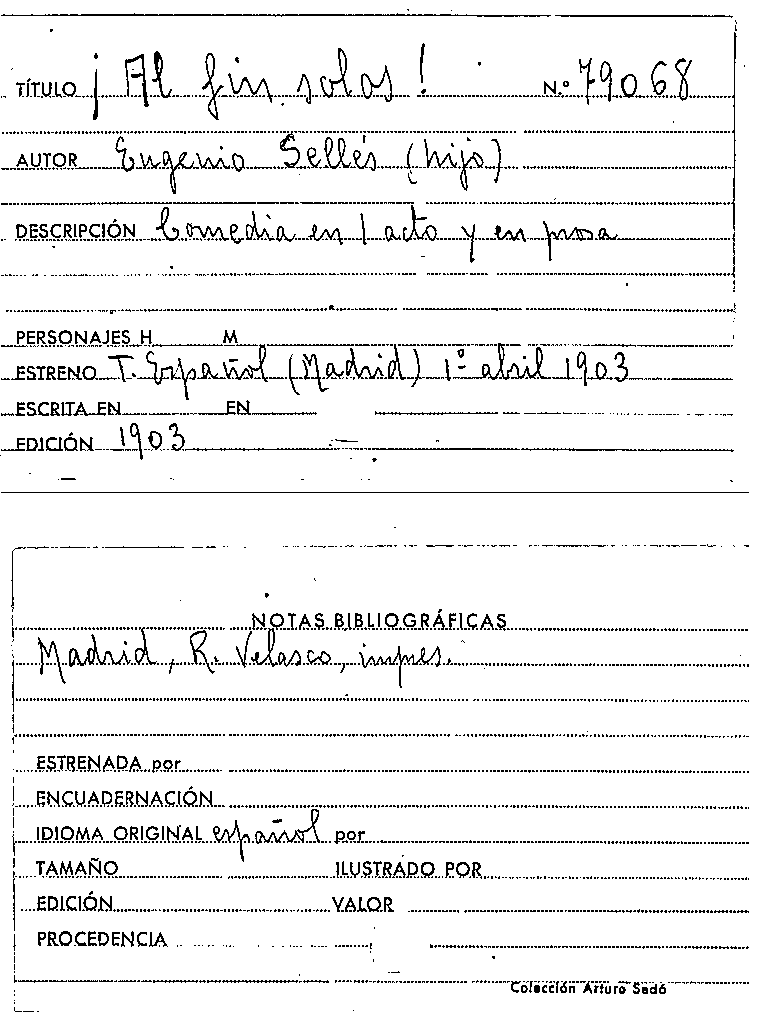 TÍTULO ¡Al fin solos! N.º 79068
AUTOR Eugenio Sellés (hijo)
DESCRIPCIÓN Comedia en 1 acto y en prosa
PERSONAJES H M
ESTRENO T. Español (Madrid) 1º abril 1903
ESCRITA EN EN
EDICIÓN 1903
NOTAS BIBLIOGRÁFICAS
Madrid, R. Velasco, impres.
ESTRENADA por
ENCUADERNACIÓN
IDIOMA ORIGINAL español por
TAMAÑO ILUSTRADO POR
EDICIÓN VALOR
PROCEDENCIA
Colección Arturo Sedó